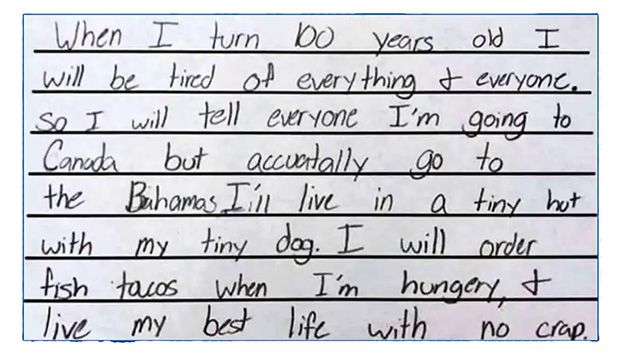 When I turn 100 years old I
will be tired of everything & everyone.
So I will tell everyone I'm going to
Canada but accuatally go to
the Bahamas I'll live in a tiny hut
with my tiny dog. I will order
fish tacos when I'm hungery, &
live my best life with no crap.